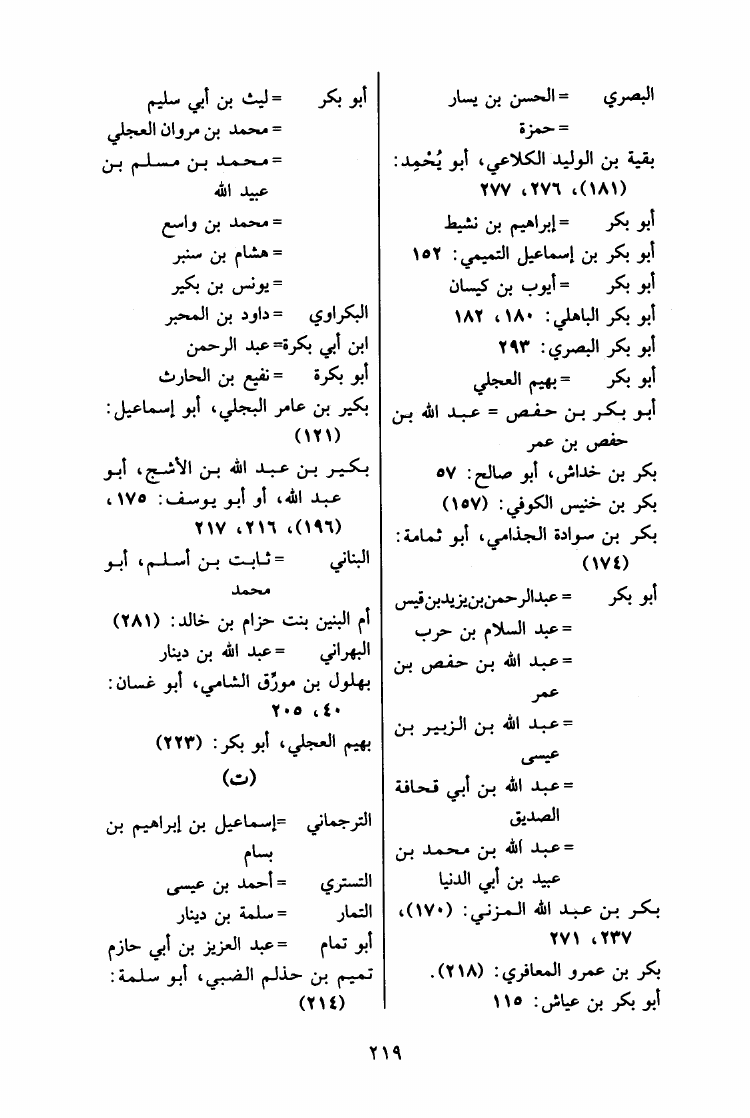 البصري =الحسن بن يسار
=حمزة
بقية بن الوليد الكلاعي، أبو يُحْمِد:
(١٨١)، ٢٧٦، ٢٧٧
أبو بكر =إبراهيم بن نشيط
أبو بكر بن إسماعيل التميمي: ١٥٢
أبو بكر =أيوب بن كيسان
أبو بكر الباهلي: ١٨٠، ١٨٢
أبو بكر البصري: ٢٩٣
أبو بكر =بهيم العجلي
أبو بكر بن حفص = عبد الله بن
حفص بن عمر
بكر بن خداش، أبو صالح: ٥٧
بكر بن خنيس الكوفي: (١٥٧)
بكر بن سوادة الجذامي، أبو ثمامة:
(١٧٤)
أبو بكر =عبدالرحمن بن يزيد بن قيس
=عبد السلام بن حرب
=عبد الله بن حفص بن
عمر
=عبد الله بن الزبير بن
عيسى
=عبد الله بن أبي قحافة
الصديق
=عبد الله بن محمد بن
عبيد بن أبي الدنيا
بكر بن عبد الله المزني: (١٧٠)،
٢٣٧، ٢٧١
بكر بن عمرو المعافري: (٢١٨).
أبو بكر بن عياش: ١١٥
أبو بكر =ليث بن أبي سليم
=محمد بن مروان العجلي
=محمد بن مسلم بن
عبيد الله
=محمد بن واسع
=هشام بن سنبر
=يونس بن بكير
البكراوي =داود بن المحبر
ابن أبي بكرة=عبد الرحمن
أبو بكرة =نفيع بن الحارث
بكير بن عامر البجلي، أبو إسماعيل:
(١٢١)
بكير بن عبد الله بن الأشج، أبو
عبد الله، أو أبو يوسف: ١٧٥،
(١٩٦)، ٢١٦، ٢١٧
البناني =ثابت بن أسلم، أبو
محمد
أم البنين بنت حزام بن خالد: (٢٨١)
البهراني =عبد الله بن دينار
بهلول بن مورِّق الشامي، أبو غسان:
٤٠، ٢٠٥
بهيم العجلي، أبو بكر: (٢٢٣)
(ت)
الترجماني =إسماعيل بن إبراهيم بن
بسام
التستري =أحمد بن عيسى
التمار =سلمة بن دينار
أبو تمام =عبد العزيز بن أبي حازم
تميم بن حذلم الضبي، أبو سلمة:
(٢١٤)
٢١٩